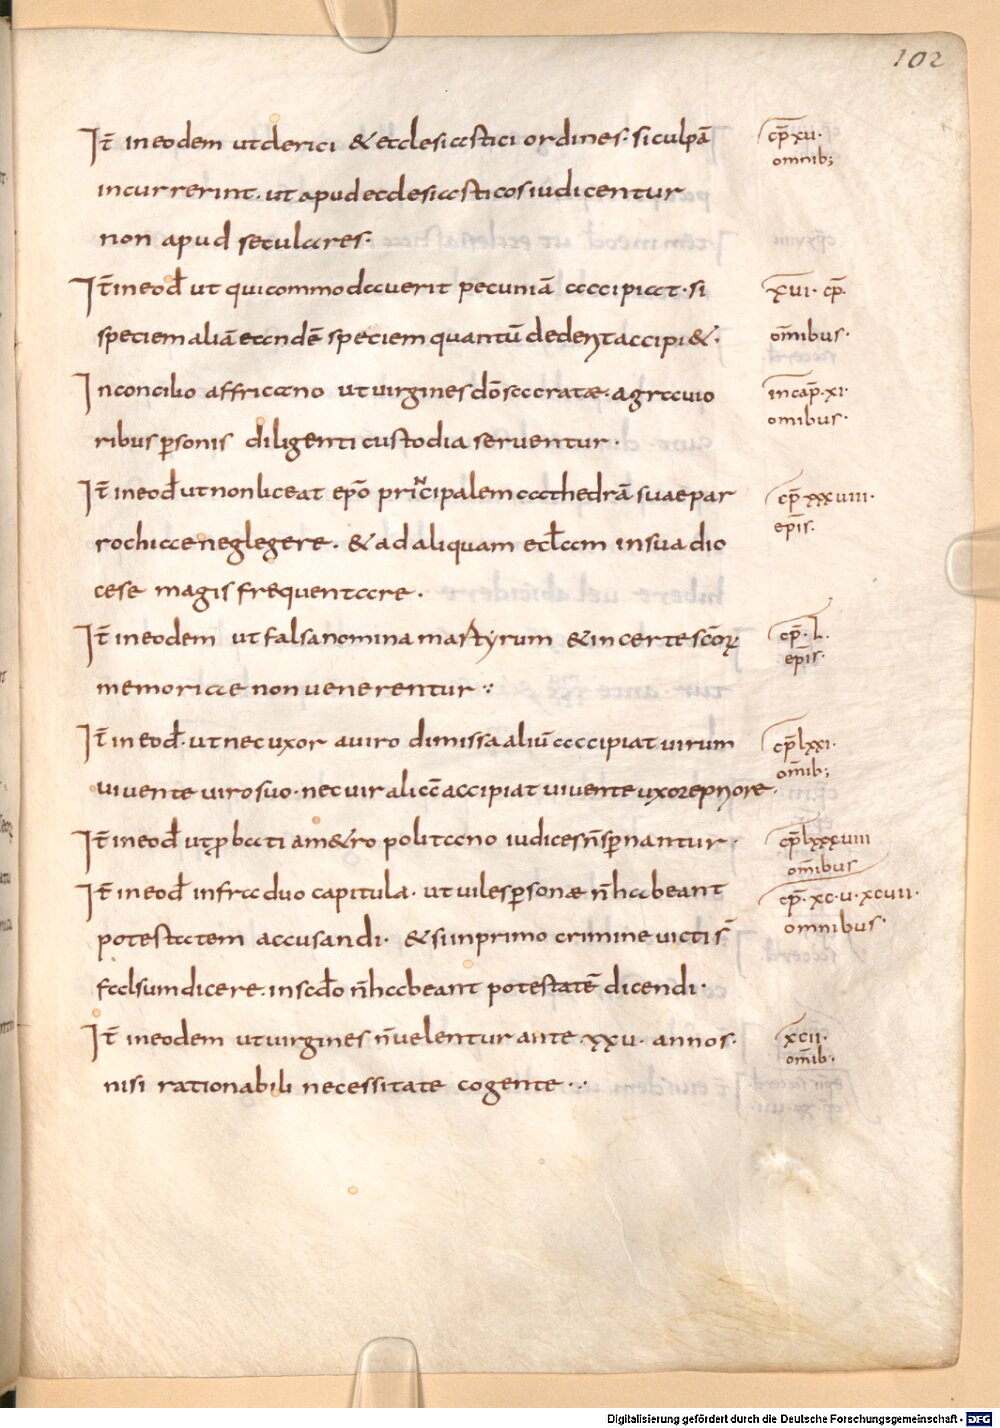 102
It̄ in eodem ut clerici & ecclesiastici ordines· si culpā
incurrerint· ut apud ecclesiasticos iudicentur
non apud seculares·
cp̄ xv·
omnib;
It̄ in eod̄ ut qui commodauerit pecuniā accipiat· si
speciem aliā eandē speciem quantū dederit accipi&·
xvi· cp̄·
om̄ibus·
In concilio affricano ut uirgines dō sacratae· a grauio
ribus p̄sonis diligenti custodia seruentur·
in cap̄· xi·
omibus·
It̄ in eod̄ ut non liceat ep̄o principalem cathedrā suae par
rochiae neglegere· & ad aliquam ecl̄am in sua dio
cese magis frequentare·
cp̄ xxxviii·
ep̄is·
It̄ in eodem ut falsa nomina martyrum & incerte sc̄oꝝ
memoriae non uenerentur
cp̄· L·
ep̄is·
It̄ in eod̄· ut nec uxor a uiro dimissa aliū accipiat uirum
uiuente uiro suo· nec uir aliā accipiat uiuente uxore priore·
cp̄ lxxi·
om̄ib;
It̄ in eod̄ ut p̱bati a m&ropolitano iudices n̄ sp̱nantur·
cp̄ lxxxviii
om̄ibus
It̄ in eod̄ infra duo capitula· ut uiles p̱sonae n̄ habeant
potestatem accusandi· & si in primo crimine uicti s̄
falsum dicere· in sc̄do n̄ habeant potestatē dicendi·
cp̄· xc·v·xcvii·
omnibus·
It̄ in eodem ut uirgines n̄ uelentur ante xxv· annos·
nisi rationabili necessitate cogente··
xcii·
om̄ib·
Digitalisierung gefördert durch die Deutsche Forschungsgemeinschaft - DFG